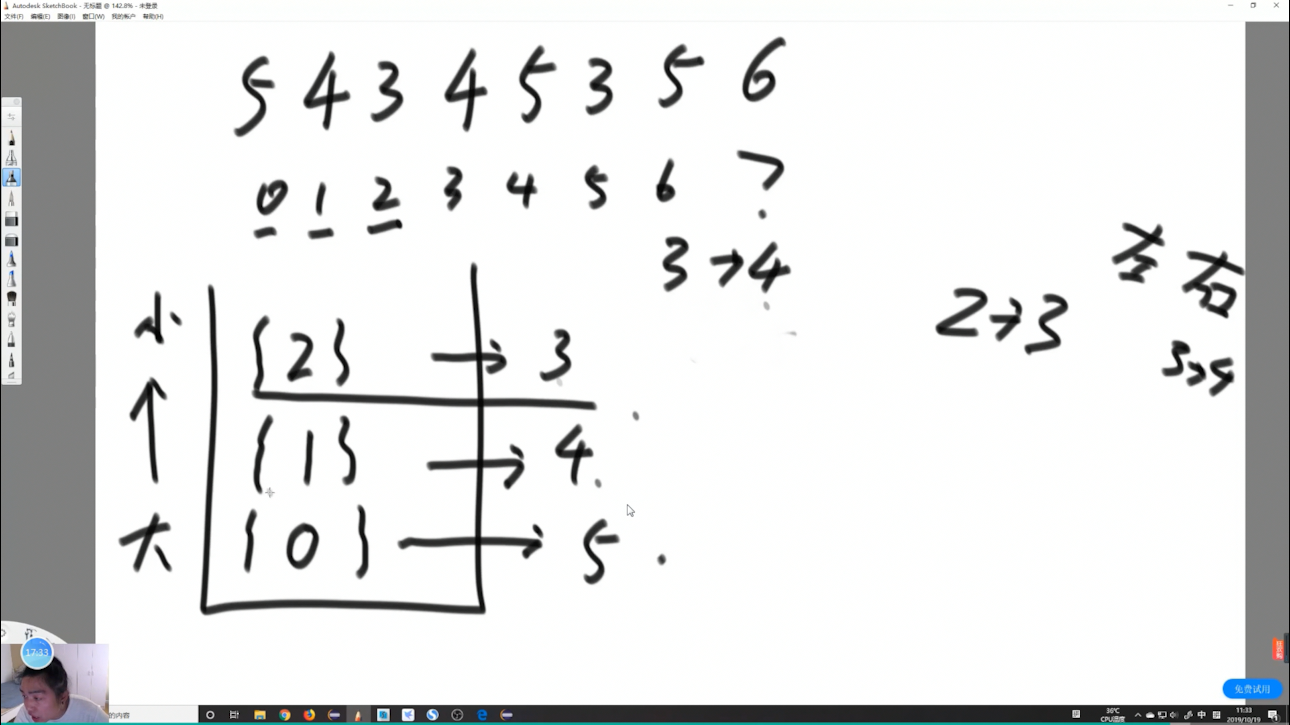 Autodesk SketchBook - 无标题 @ 142.8% - 未登录
文件(F) 编辑(E) 图像(I) 窗口(W) 我的帐户 帮助(H)
5 4 3 4 5 3 5 6
0 1 2 3 4 5 6 7
3→4
左 右
2→3
3→4
小
{2} → 3
{1} → 4
大
{0} → 5
17:33
免费试用
的内容
36℃
CPU温度
中
11:33
2019/10/19